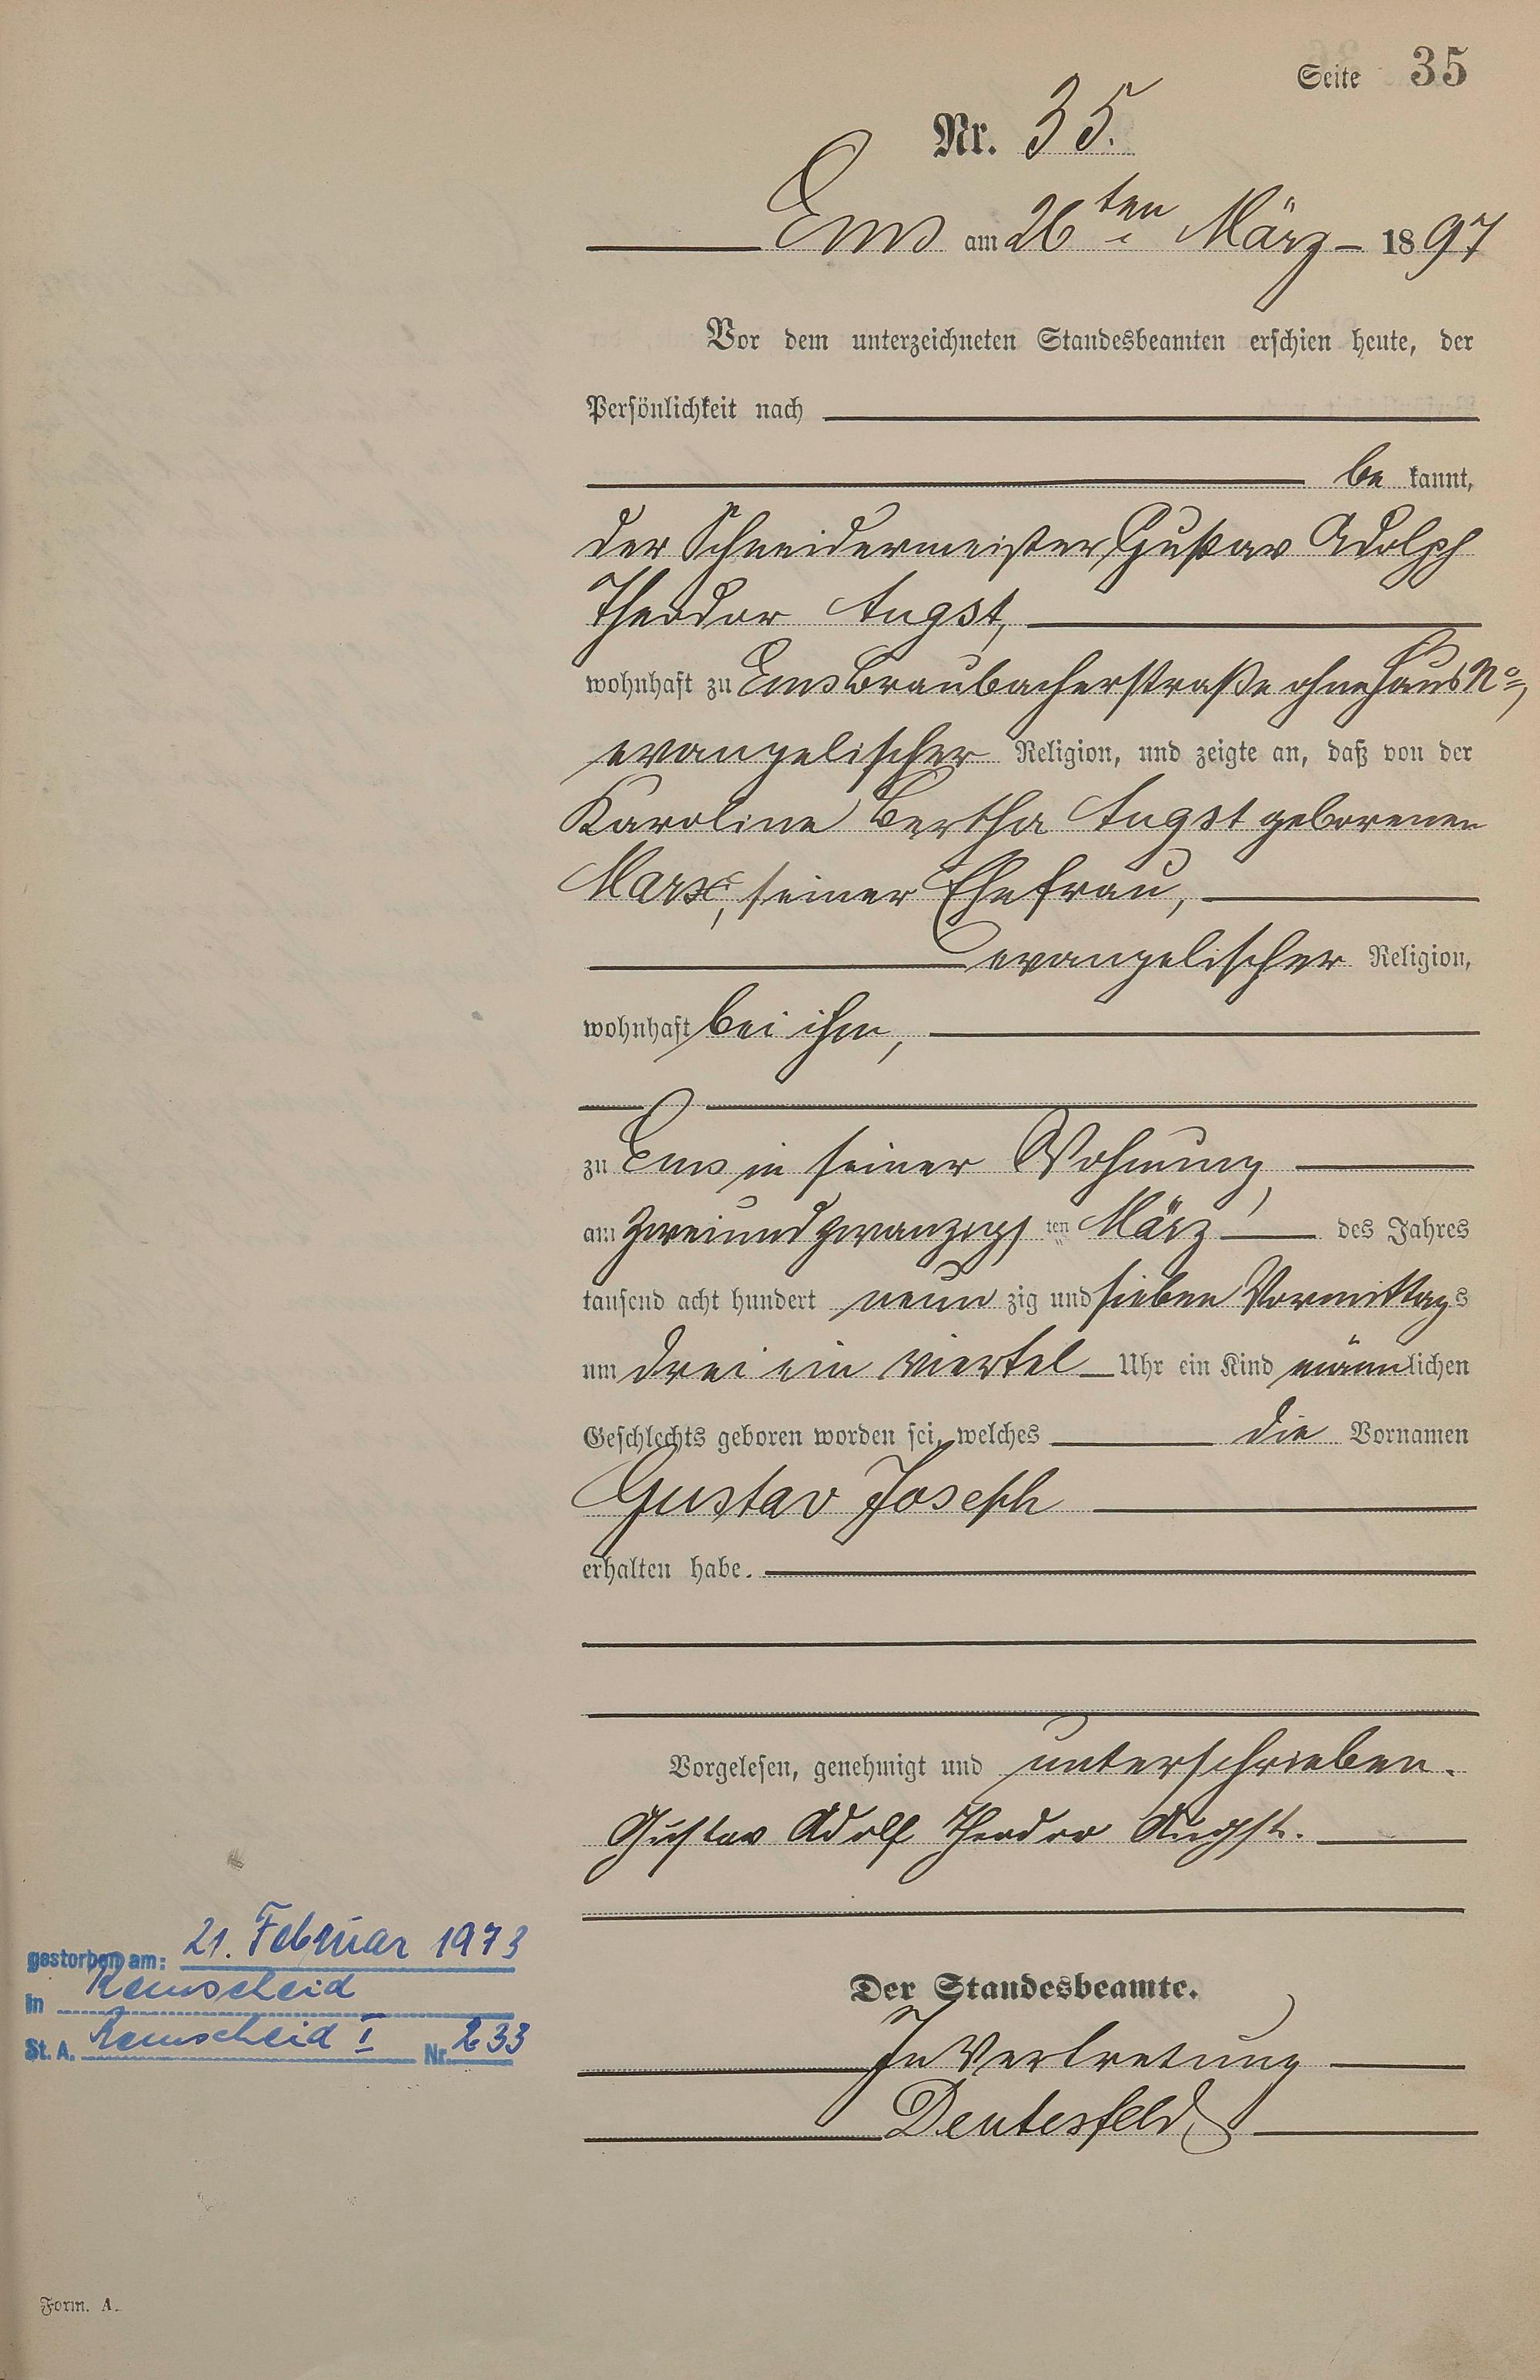 Seite 35
Nr. 35.
Ems am 26ten März 1897
Vor dem unterzeichneten Standesbeamten erschien heute, der
Persönlichkeit nach
be kannt,
der Schneidermeister Gustav Adolph
Theodor Angst,
wohnhaft zu Ems Braubacherstraße ohne Haus No,
evangelischer Religion, und zeigte an, daß von der
Karoline Bertha Angst geborenen
Marx, seiner Ehefrau,
evangelischer Religion,
wohnhaft bei ihm,
zu Ems in seiner Wohnung,
am zweiundzwanzigsten März des Jahres
tausend acht hundert neun zig und sieben Vormittags
um drei ein viertel Uhr ein Kind männlichen
Geschlechts geboren worden sei, welches die Vornamen
Gustav Joseph
erhalten habe.
Vorgelesen, genehmigt und unterschrieben.
Gustav Adolf Theodor Angst.
Der Standesbeamte.
In Vertretung
Deutesfeld
gestorben am: 21. Februar 1973
in Remscheid
St. A. Remscheid I Nr. 233
Form. A.